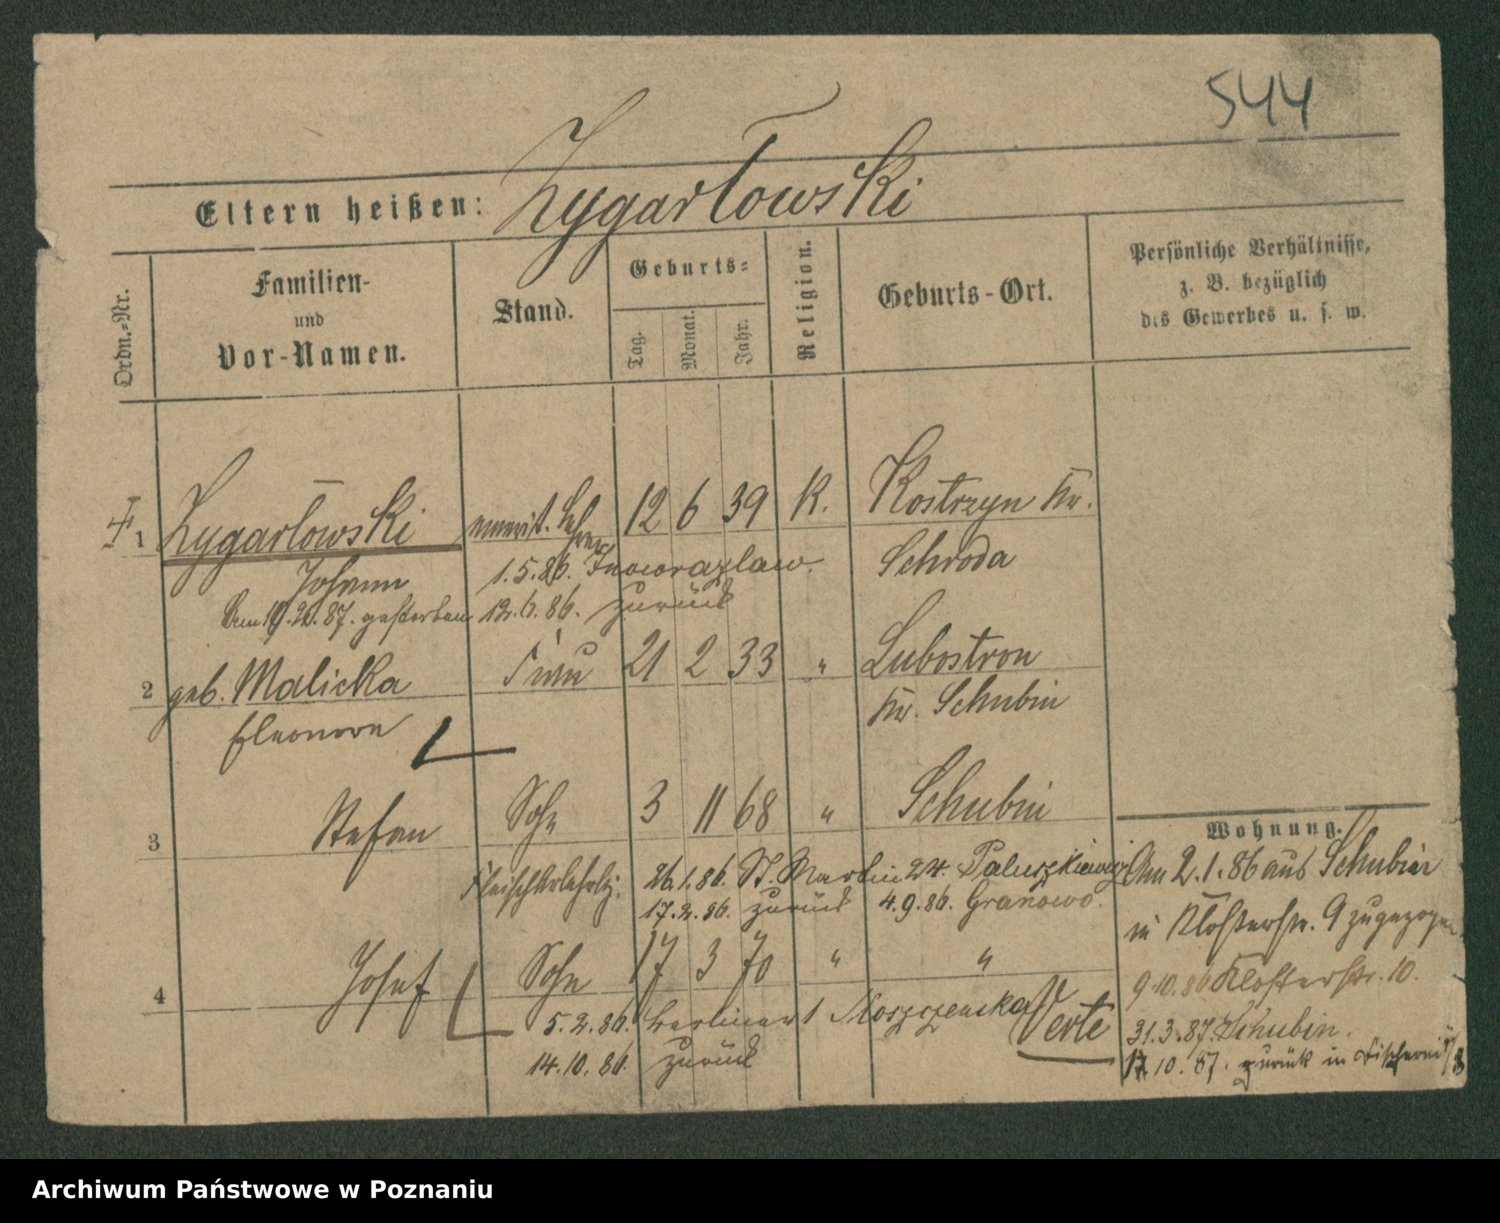 544
Eltern heißen: Zygarłowski
Ordn.-Nr.
Familien-
und
Vor-Namen.
Stand.
Geburts-
Tag.
Monat.
Jahr.
Religion.
Geburts-Ort.
Persönliche Verhältnisse,
z. B. bezüglich
des Gewerbes u. s. w.
1 Zygarłowski emerit. Lehrer 12 6 39 K. Kostrzyn Kr.
Johann 1.5.86. Inowrazlaw. Schroda
gestorben 12.6.86. zurück
2 geb. Malicka Frau 21 2 33 " Lubostron
Eleonore Kr. Schubin
3 Stefan Sohn 3 11 68 " Schubin
Fleischerlehrlg. 26.1.86. St. Martin 24. Paluszkiewicz
17.2.86. zurück 4.9.86. Granowo.
4 Josef Sohn 17 3 70 " "
5.2.86. Berliner 1 Moszczenska
14.10.86. zurück
Verte
Wohnung.
Am 2.1.86 aus Schubin
in Klosterstr. 9 zugezogen
9.10.86 Klosterstr. 10.
31.3.87. Schubin.
17.10.87. zurück in Fischerei
Archiwum Państwowe w Poznaniu